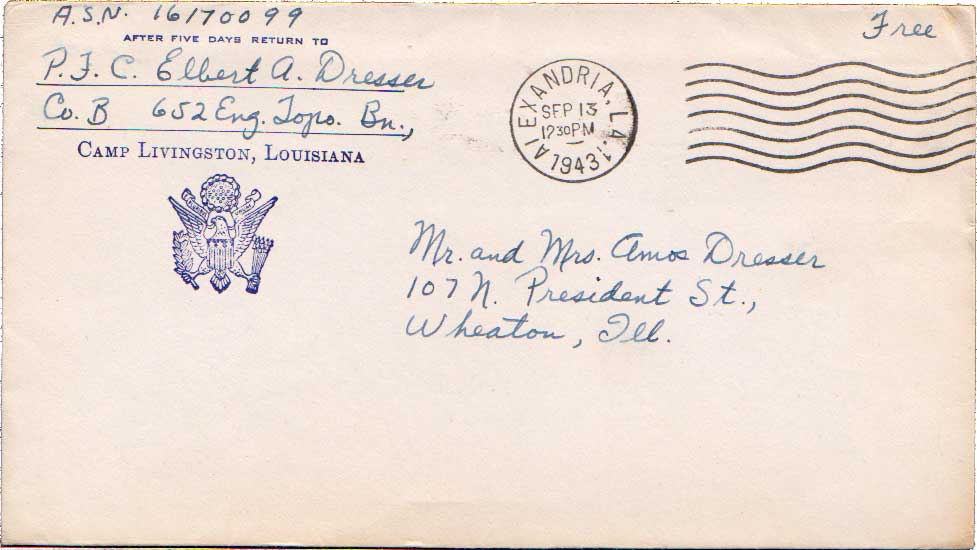 A.S.N. 16170099
AFTER FIVE DAYS RETURN TO
P.F.C. Elbert A. Dresser
Co. B 652 Eng. Topo. Bn.,
CAMP LIVINGSTON, LOUISIANA
Free
ALEXANDRIA, LA.
SEP 13
1230PM
1943
Mr. and Mrs. Amos Dresser
107 N. President St.,
Wheaton, Ill.